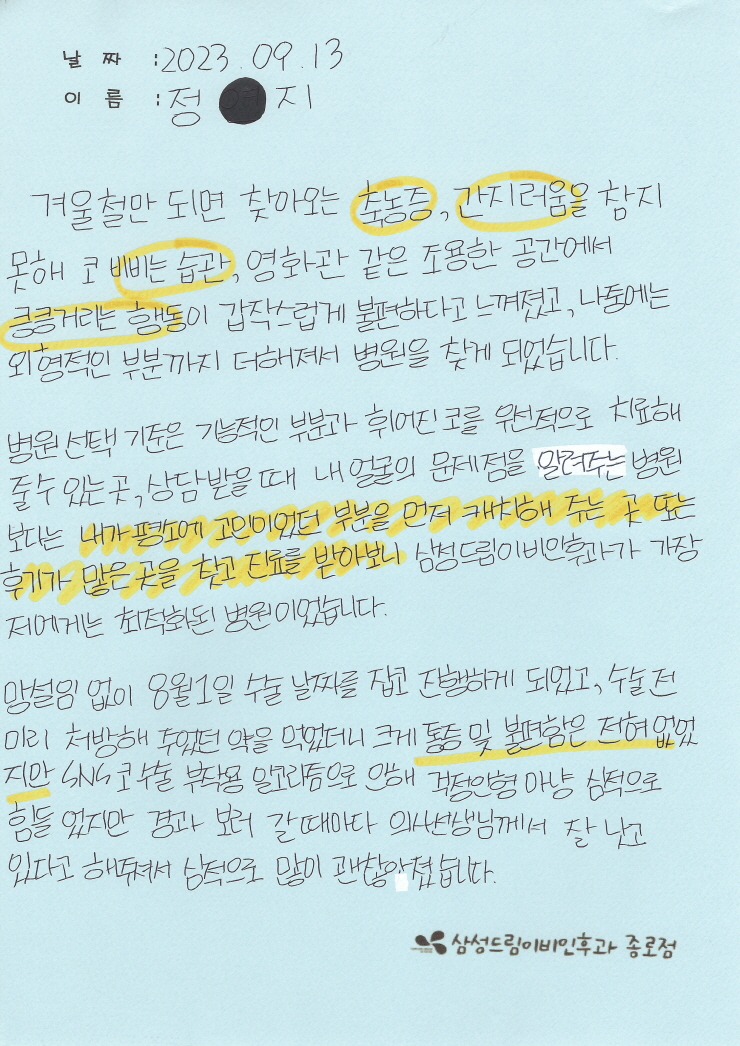 날 짜 : 2023. 09. 13
이 름 : 정 지
겨울철만 되면 찾아오는 축농증, 간지러움을 참지
못해 코 비비는 습관, 영화관 같은 조용한 공간에서
킁킁거리는 행동이 갑작스럽게 불편하다고 느껴졌고, 나중에는
외형적인 부분까지 더해져서 병원을 찾게 되었습니다.
병원 선택 기준은 기능적인 부분과 휘어진 코를 우선적으로 치료해
줄 수 있는 곳, 상담 받을 때 내 얼굴의 문제점을 알려주는 병원
보다는 내가 평소에 고민이었던 부분을 먼저 캐치해 주는 곳 또는
후기가 많은 곳을 찾고 진료를 받아보니 삼성드림이비인후과가 가장
저에게는 최적화된 병원이었습니다.
망설임 없이 8월1일 수술 날짜를 잡고 진행하게 되었고, 수술 전
미리 처방해 주었던 약을 먹었더니 크게 통증 및 불편함은 전혀 없었
지만 SNS 코수술 부작용 알고리즘으로 인해 걱정인형 마냥 심적으로
힘들었지만 경과 보러 갈 때마다 의사선생님께서 잘 낫고
있다고 해주셔서 심적으로 많이 괜찮아졌습니다.
삼성드림이비인후과 종로점